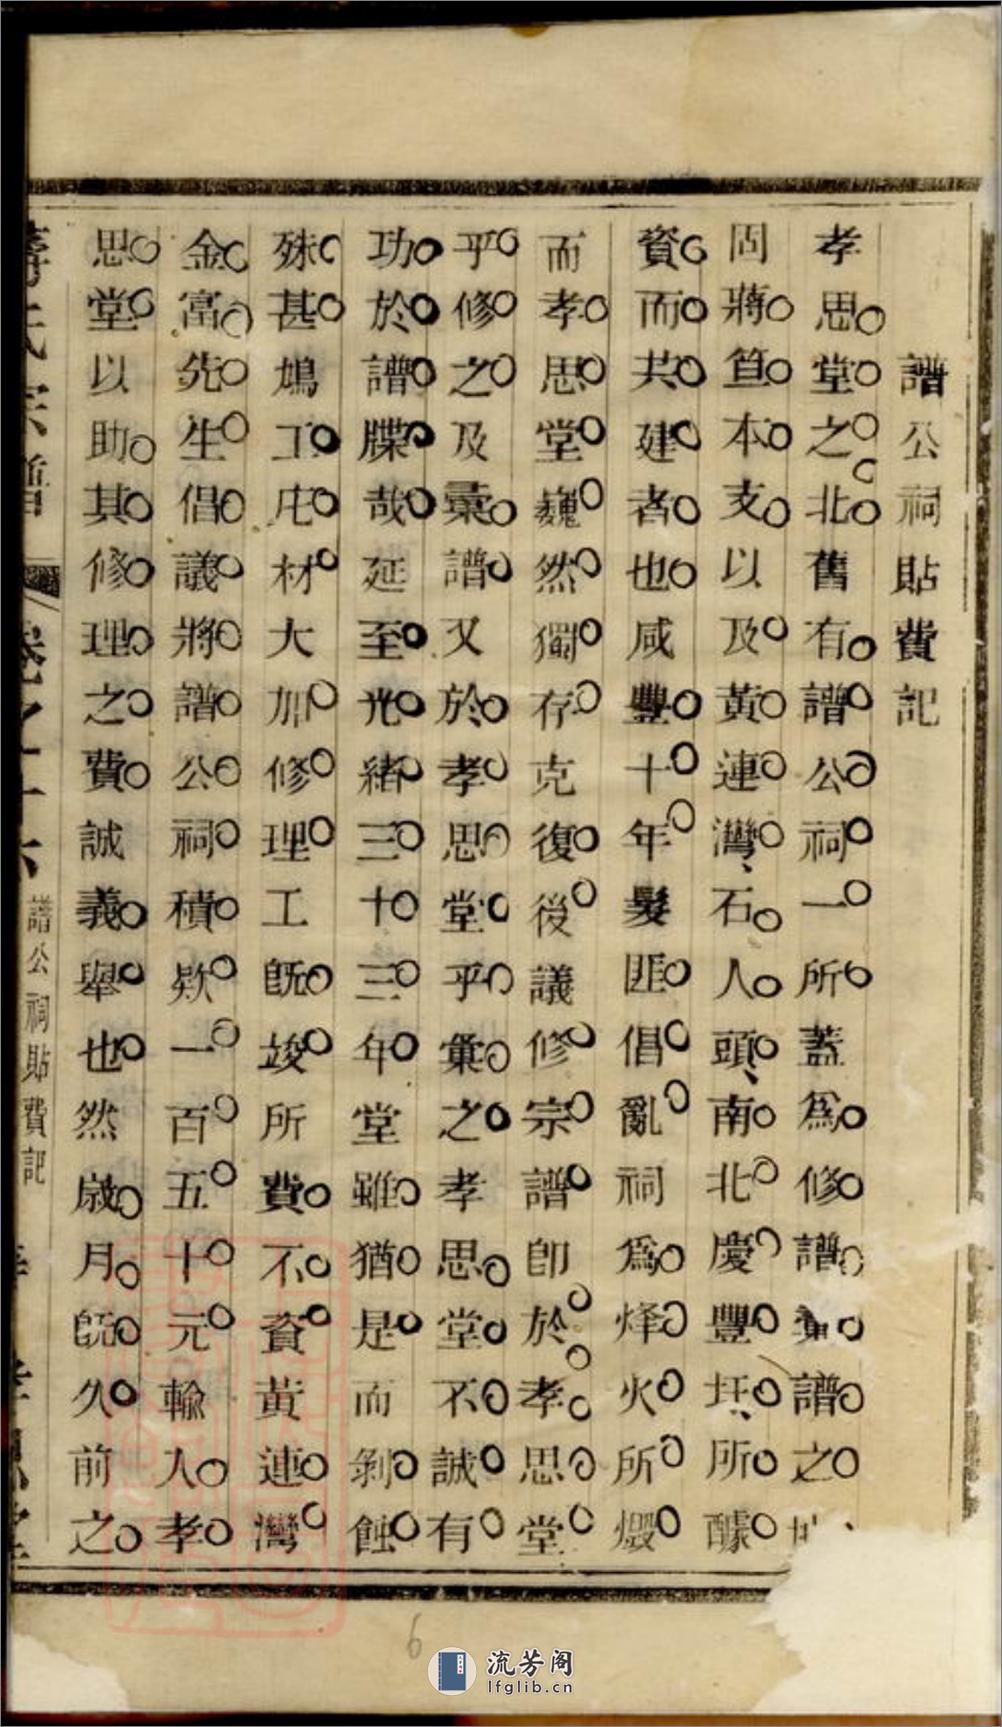 譜公祠貼費記
孝思堂之北舊有譜公祠一所蓋爲修譜彙譜之
固蔣笪本支以及黃連灣石人頭南北慶豐圩所醵
資而共建者也咸豐十年髮匪倡亂祠爲烽火所燬
而孝思堂巍然獨存克復後議修宗譜卽於孝思堂
乎修之及彙譜又於孝思堂乎彙之孝思堂不誠有
功於譜牒哉延至光緒三十三年堂雖猶是而剝蝕
殊甚鳩工庀材大加修理工旣竣所費不資黃連灣
金富先生倡議將譜公祠積欵一百五十元輸入孝
思堂以助其修理之費誠義舉也然歲月旣久前之
蔣氏宗譜
卷之十六
譜公祠貼費記
孝思堂
6
流芳阁
lfglib.cn